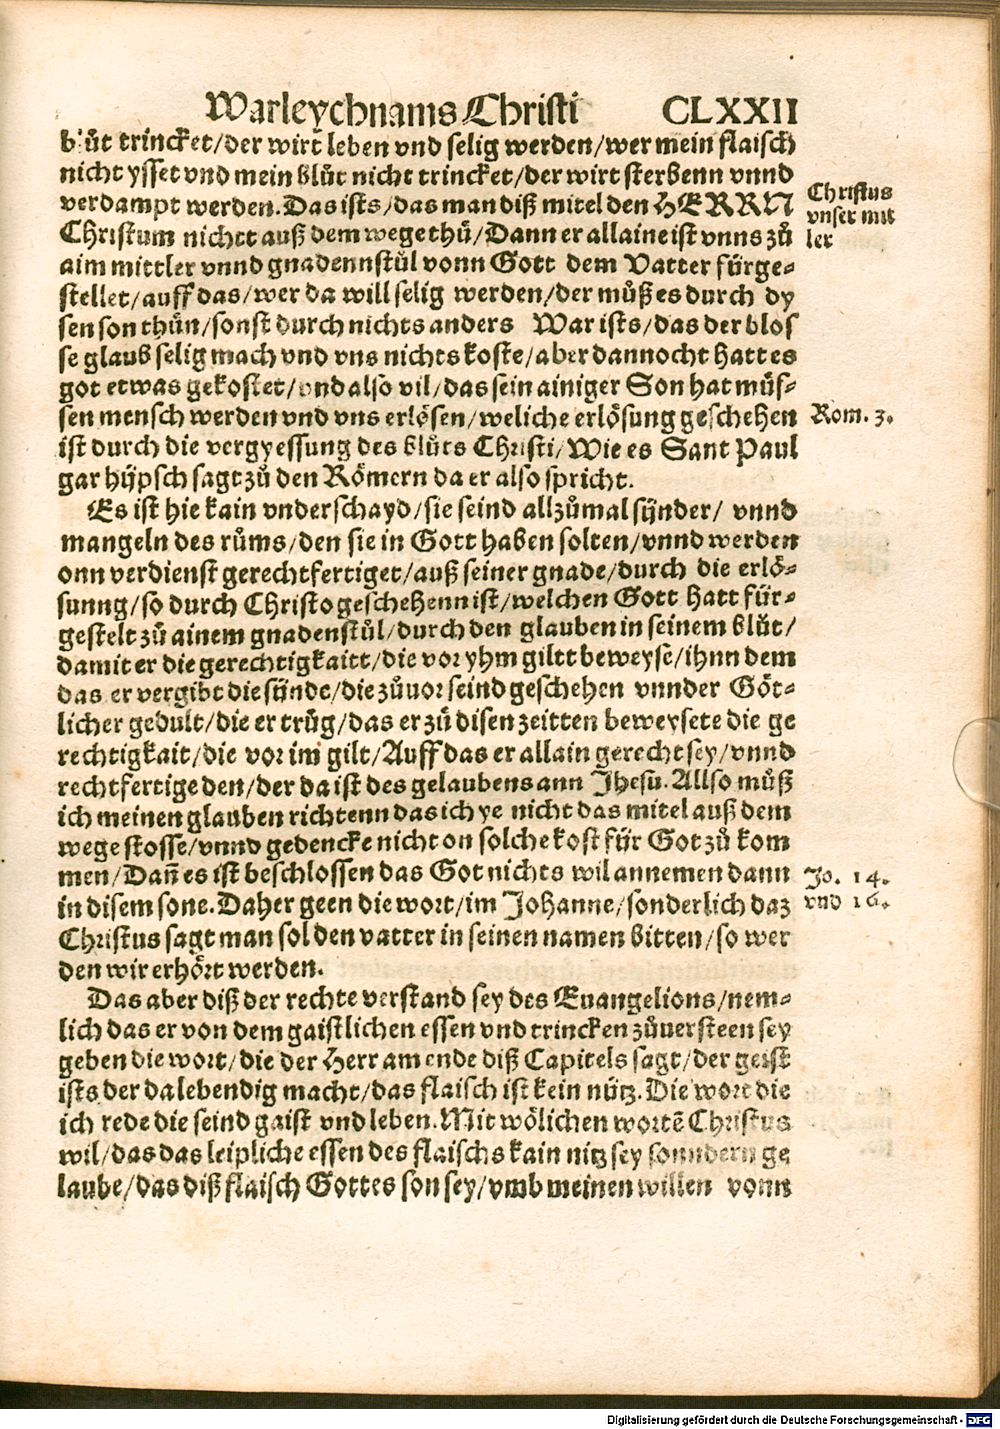 Warleychnams Christi CLXXII
blůt trincket/der wirt leben vnd selig werden/wer mein flaisch
nicht ysset vnd mein blůt nicht trincket/der wirt sterbenn vnnd
verdampt werden. Das ists/das man diß mitel den HERRN
Christus
vnser mit
ler
Christum nichtt auß dem wege thů/Dann er allaine ist vnns zů
aim mittler vnnd gnadennstůl vonn Gott dem Vatter fürge⸗
stellet/auff das/wer da will selig werden/der můß es durch dy
sen son thůn/sonst durch nichts anders War ists/das der blos
se glaub selig mach vnd vns nichts koste/aber dannocht hatt es
got etwas gekostet/vnd also vil/das sein ainiger Son hat müs⸗
sen mensch werden vnd vns erlösen/weliche erlösung geschehen
Rom. 3.
ist durch die vergyessung des blůts Christi/Wie es Sant Paul
gar hÿpsch sagt zů den Römern da er also spricht.
Es ist hie kain vnderschayd/sie seind allzůmal sÿnder/ vnnd
mangeln des růms/den sie in Gott haben solten/vnnd werden
onn verdienst gerechtfertiget/auß seiner gnade/durch die erlö⸗
sunng/so durch Christo geschehenn ist/welchen Gott hatt für⸗
gestelt zů ainem gnadenstůl/durch den glauben in seinem blůt/
damit er die gerechtigkaitt/die vor yhm giltt beweyse/ihnn dem
das er vergibt die sÿnde/die zůuor seind geschehen vnnder Göt⸗
licher gedult/die er trůg/das er zů disen zeitten beweysete die ge
rechtigkait/die vor im gilt/Auff das er allain gerecht sey/vnnd
rechtfertige den/der da ist des gelaubens ann Jhesu. Allso můß
ich meinen glauben richtenn das ich ye nicht das mitel auß dem
wege stosse/vnnd gedencke nicht on solche kost fÿr Got zů kom
men/Dañ es ist beschlossen das Got nichts wil annemen dann
Jo. 14.
vnd 16.
in disem sone. Daher geen die wort/im Johanne/sonderlich daz
Christus sagt man sol den vatter in seinen namen bitten/so wer
den wir erhört werden.
Das aber diß der rechte verstand sey des Euangelions/nem⸗
lich das er von dem gaistlichen essen vnd trincken zůuersteen sey
geben die wort/die der Herr am ende diß Capitels sagt/der geist
ists der da lebendig macht/das flaisch ist kein nütz. Die wort die
ich rede die seind gaist vnd leben. Mit wölichen wortē Christus
wil/das das leipliche essen des flaischs kain nitz sey sonndern ge
laube/das diß flaisch Gottes son sey/vmb meinen willen vonn
Digitalisierung gefördert durch die Deutsche Forschungsgemeinschaft - DFG